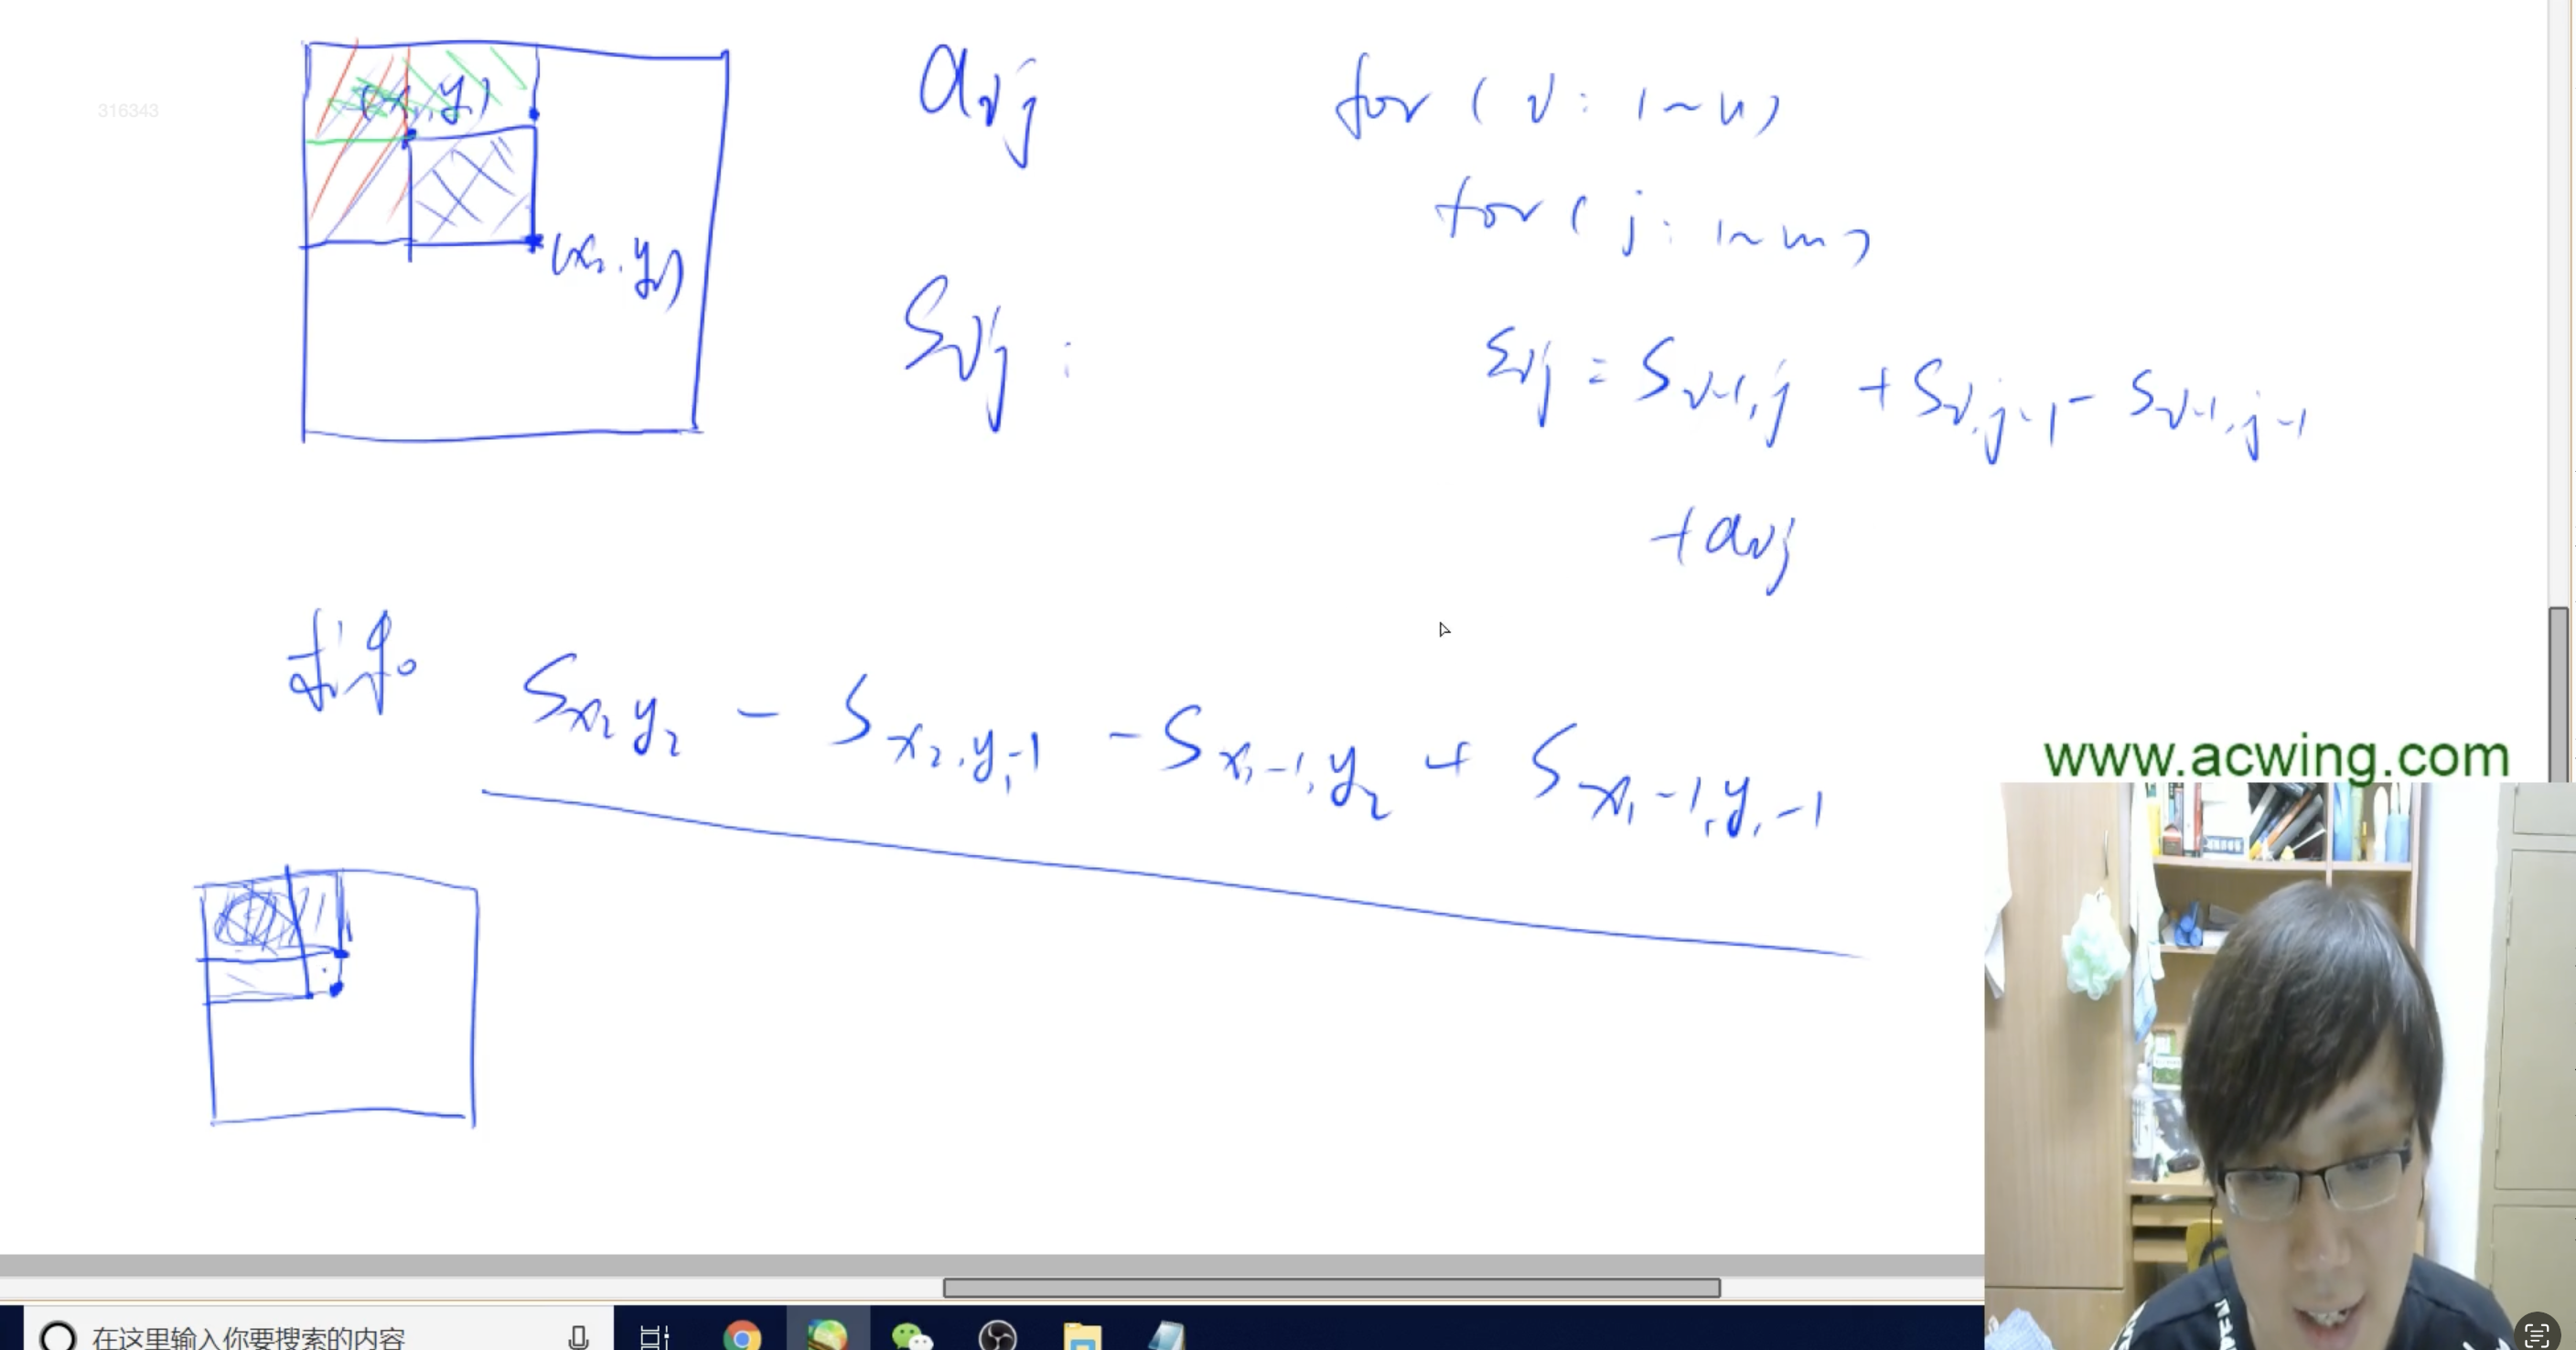 316343
(x₁,y₁)
(x₂,y₂)
aᵢⱼ
Sᵢⱼ :
for ( i : 1~n)
for ( j : 1~m)
Sᵢⱼ = Sᵢ₋₁,ⱼ + Sᵢ,ⱼ₋₁ - Sᵢ₋₁,ⱼ₋₁
+ aᵢⱼ
Sx₂y₂ - Sx₂,y₁-1 - Sx₁-1,y₂ + Sx₁-1,y₁-1
www.acwing.com
在这里输入你要搜索的内容